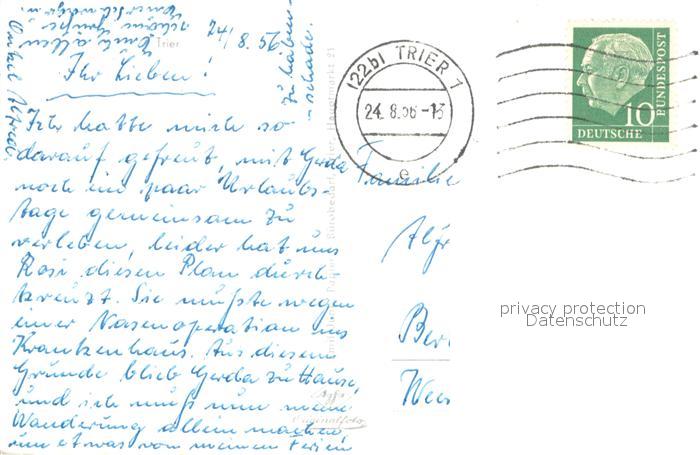 24/8.56
Trier
Ihr Lieben!
Ich hatte mich so
darauf gefreut, mit Gerda
noch ein paar Urlaubs-
tage gemeinsam zu
verleben, leider hat uns
Rosi diesen Plan durch-
kreuzt. Sie mußte wegen
einer Nasenoperation ins
Krankenhaus. Aus diesem
Grunde blieb Gerda zu Hause,
und ich muß nun meine
Wanderung allein machen
um etwas von meinen Ferien
zu haben
schade.
Euch allen
schöne Grüße
Onkel Alfred
Hauptmarkt 21
Originalfoto
(22b) TRIER 1
24.8.56-13
e
DEUTSCHE
BUNDESPOST
10
Familie
privacy protection
Datenschutz